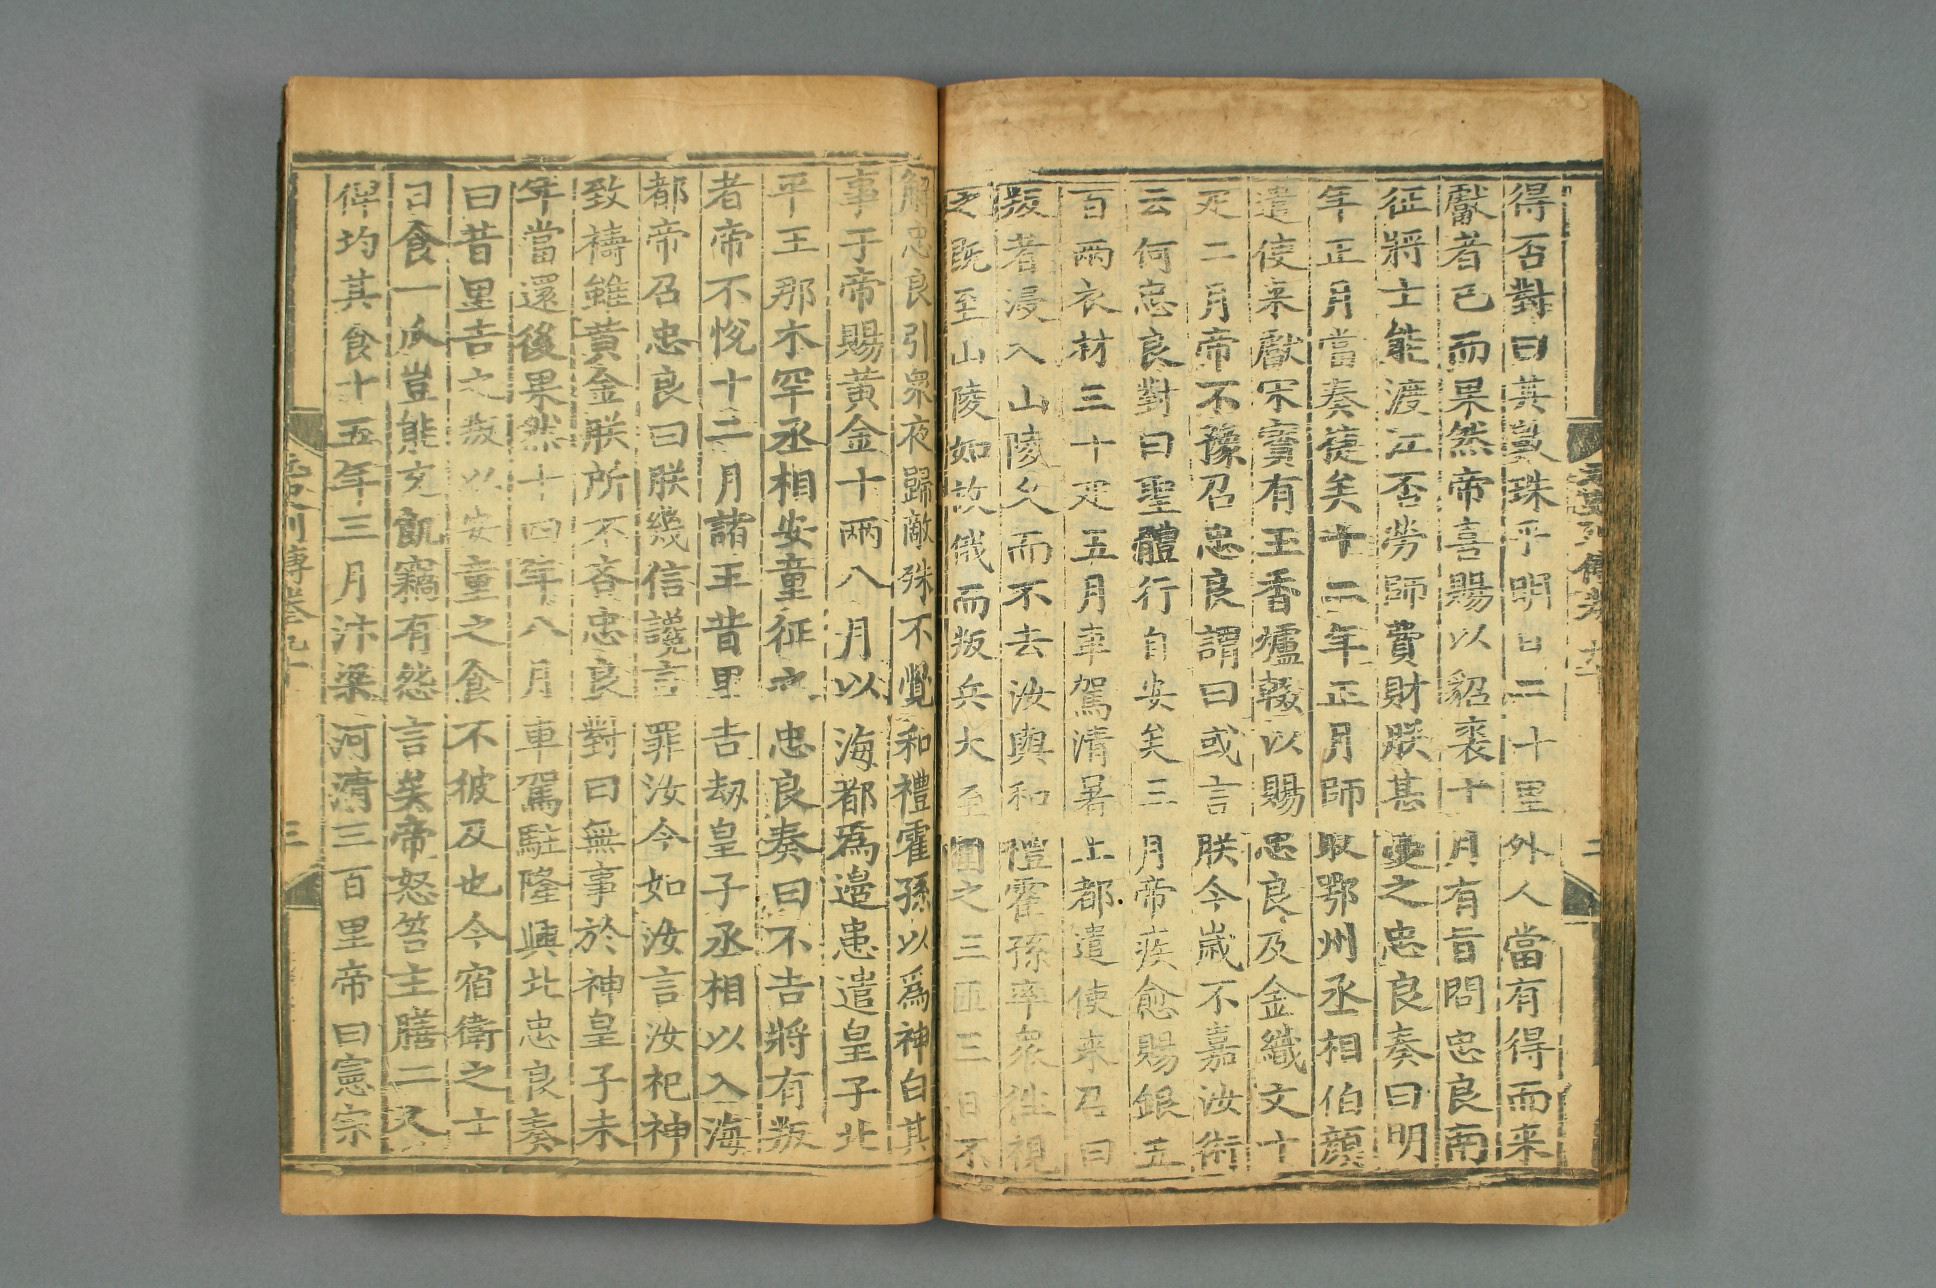 得否對曰其數珠乎明日二十里外人當有得而来
獻者已而果然帝喜賜以貂裘十月有旨問忠良南
征將士能渡江否勞師費財朕甚憂之忠良奏曰明
年正月當奏徒矣十二年正月師取鄂州丞相伯顔
遣使来獻宋寳有玉香爐輟以賜忠良及金織文十
疋二月帝不豫召忠良謂曰或言朕今歲不嘉汝術
云何忠良對曰聖體行自安矣三月帝疾愈賜銀五
百兩衣材三十疋五月車駕清暑上都遣使来召曰
叛者浸入山陵久而不去汝與和禮霍孫率衆往視
之既至山陵如故俄而叛兵大至圍之三匝三日不
解忠良引衆夜歸敵殊不覺和禮霍孫以爲神白其
事于帝賜黃金十兩八月以海都爲邉患遣皇子北
平王那木罕丞相安童征之忠良奏曰不吉將有叛
者帝不悅十二月諸王昔里吉劫皇子丞相以入海
都帝召忠良曰朕幾信讒言罪汝今如汝言汝祀神
致禱雖黃金朕所不吝忠良對曰無事於神皇子未
年當還後果然十四年八月車駕駐隆興北忠良奏
曰昔里吉之叛以安童之食不彼及也今宿衛之士
日食一瓜豈能充飢竊有怨言矣帝怒笞主膳二人
俾均其食十五年三月汴梁河清三百里帝曰憲宗
元史列傳卷九十
三